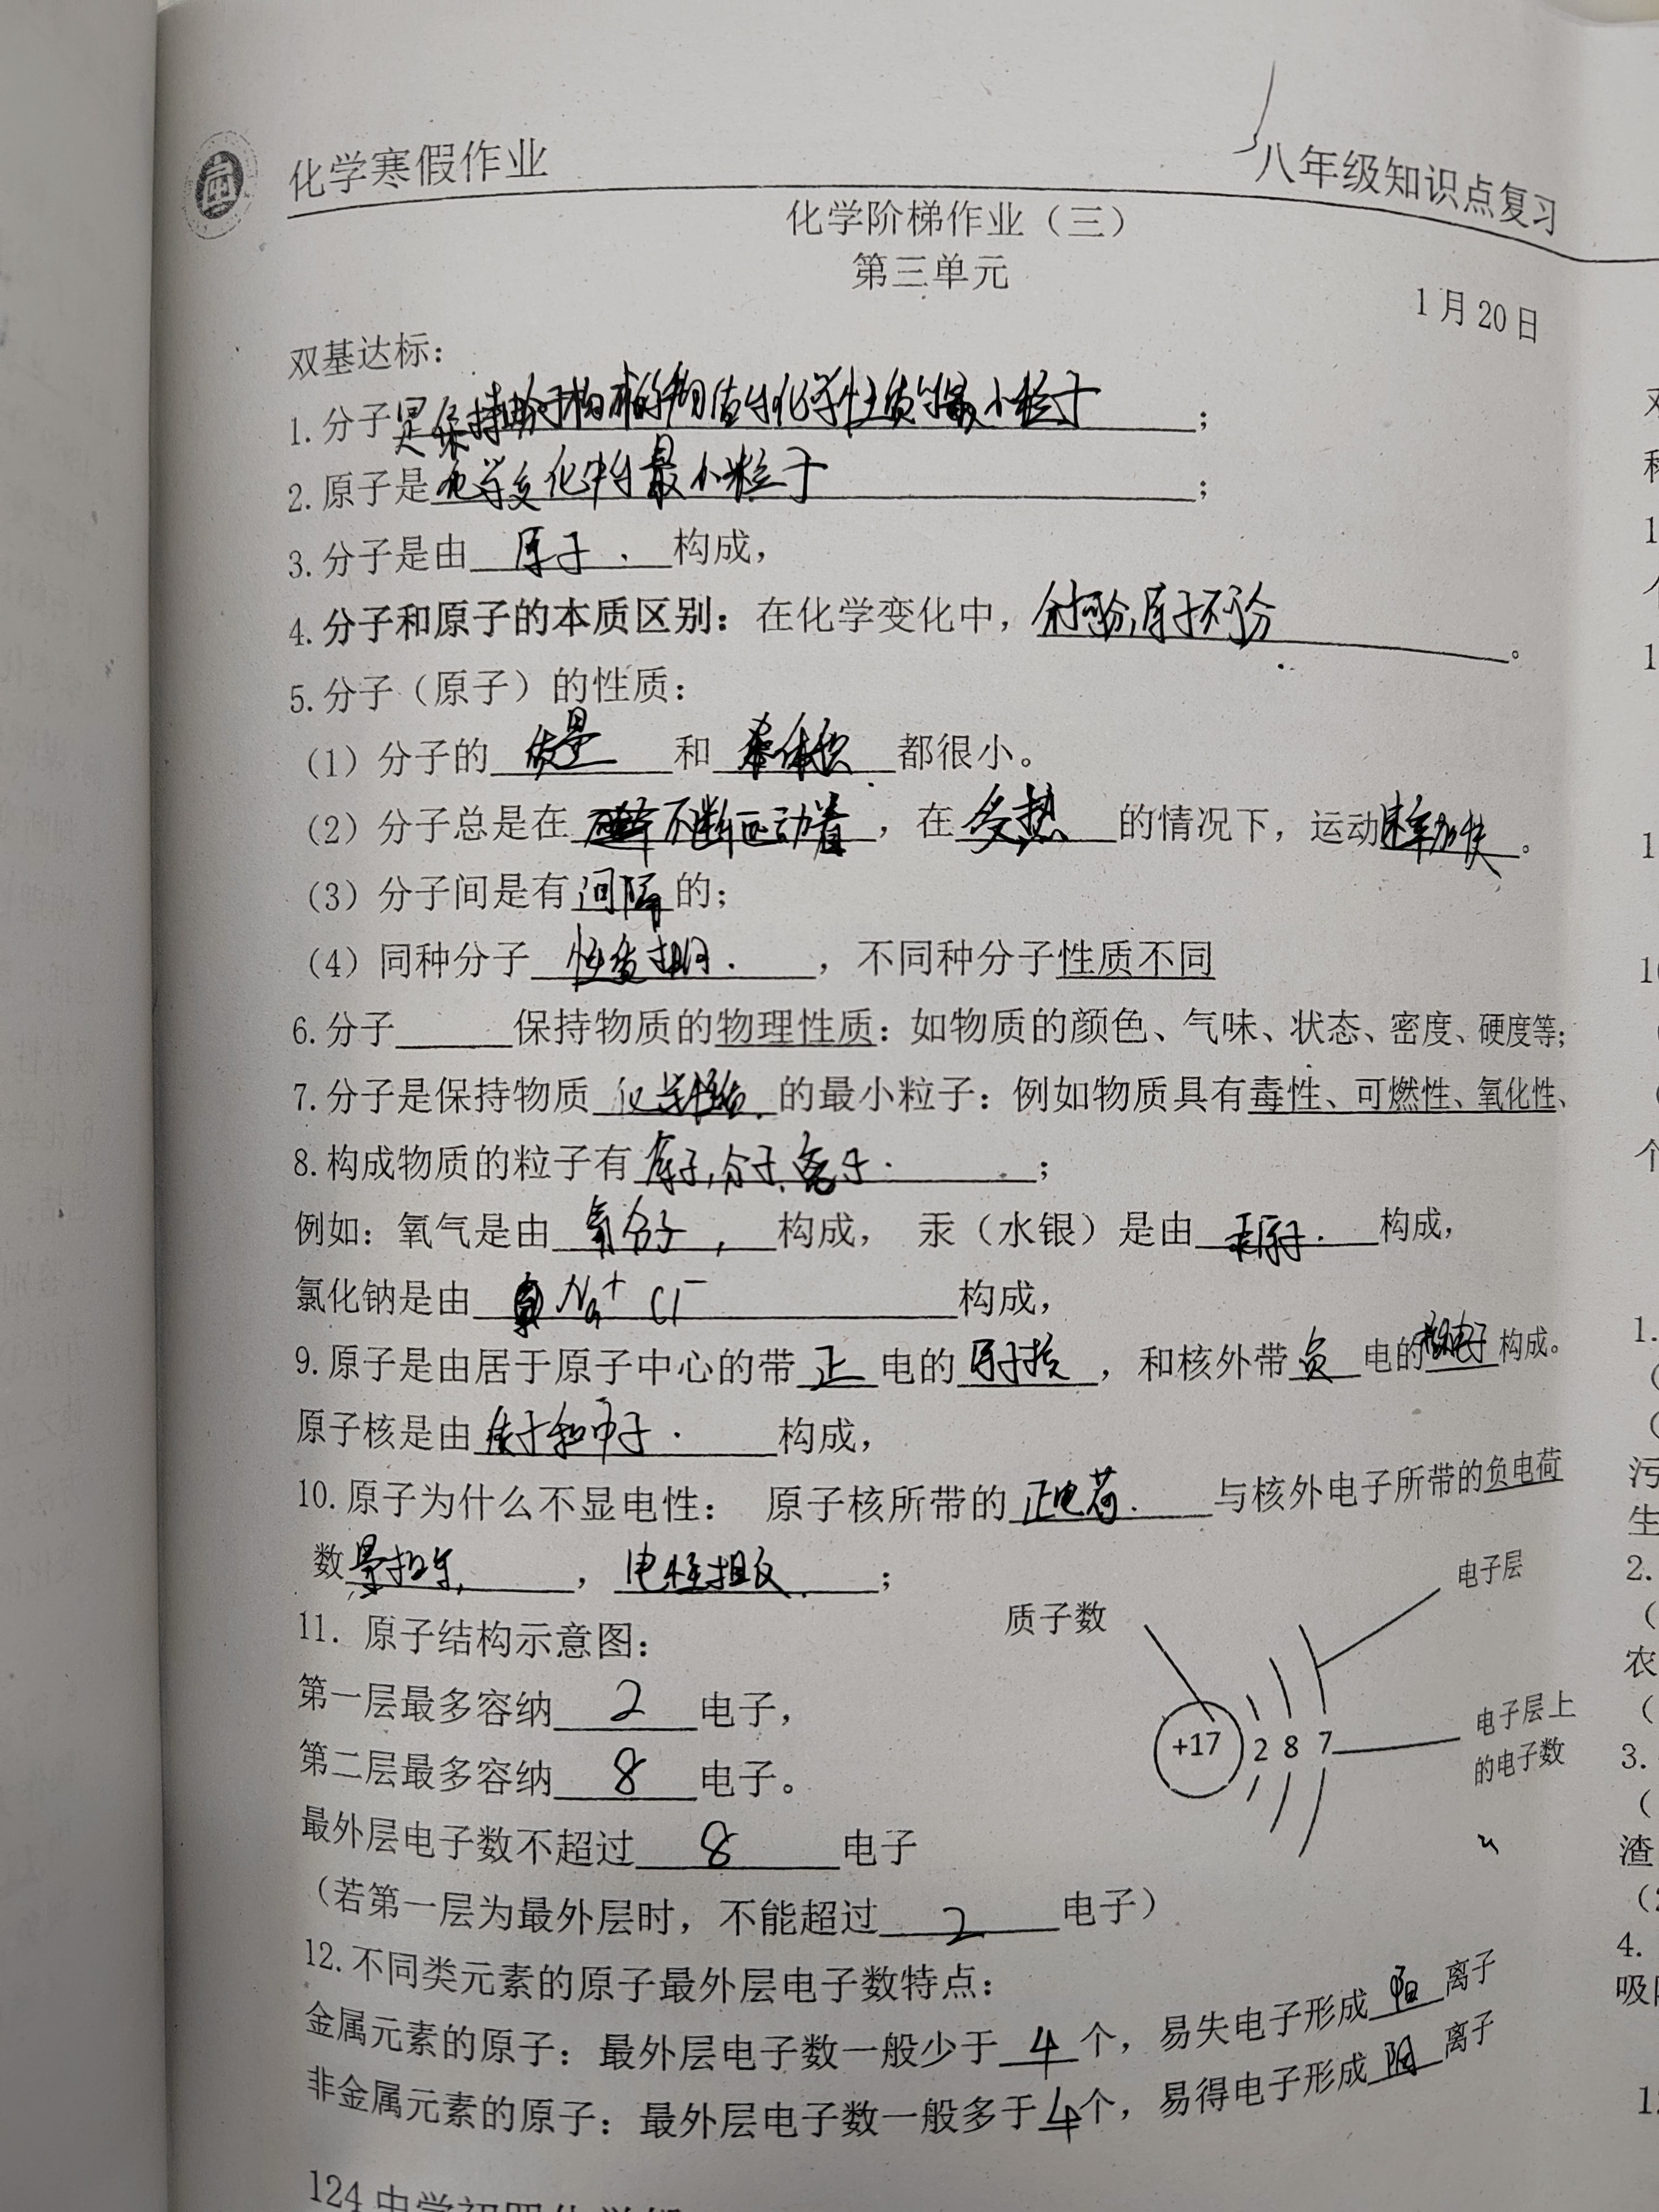 化学寒假作业 八年级知识点复习
化学阶梯作业（三）
第三单元
1月20日
双基达标：
1.分子是保持由分子构成的物质的化学性质的最小粒子；
2.原子是化学变化中的最小粒子；
3.分子是由原子构成，
4.分子和原子的本质区别：在化学变化中，分子可分，原子不可分。
5.分子（原子）的性质：
（1）分子的质量和体积都很小。
（2）分子总是在不断运动着，在受热的情况下，运动速率加快。
（3）分子间是有间隔的；
（4）同种分子性质相同，不同种分子性质不同
6.分子______保持物质的物理性质：如物质的颜色、气味、状态、密度、硬度等；
7.分子是保持物质化学性质的最小粒子：例如物质具有毒性、可燃性、氧化性、
8.构成物质的粒子有原子，分子、离子；
例如：氧气是由氧分子，构成， 汞（水银）是由汞原子构成，
氯化钠是由 Na⁺ Cl⁻ 构成，
9.原子是由居于原子中心的带正电的原子核，和核外带负电的电子构成。
原子核是由质子和中子构成，
10.原子为什么不显电性： 原子核所带的正电荷与核外电子所带的负电荷
数量相等，，电性相反；
11. 原子结构示意图：
质子数 电子层
第一层最多容纳2电子，
+17 2 8 7 电子层上的电子数
第二层最多容纳8电子。
最外层电子数不超过8电子
（若第一层为最外层时，不能超过2电子）
12.不同类元素的原子最外层电子数特点：
金属元素的原子：最外层电子数一般少于4个，易失电子形成阳离子
非金属元素的原子：最外层电子数一般多于4个，易得电子形成阴离子
124中学初四化学组